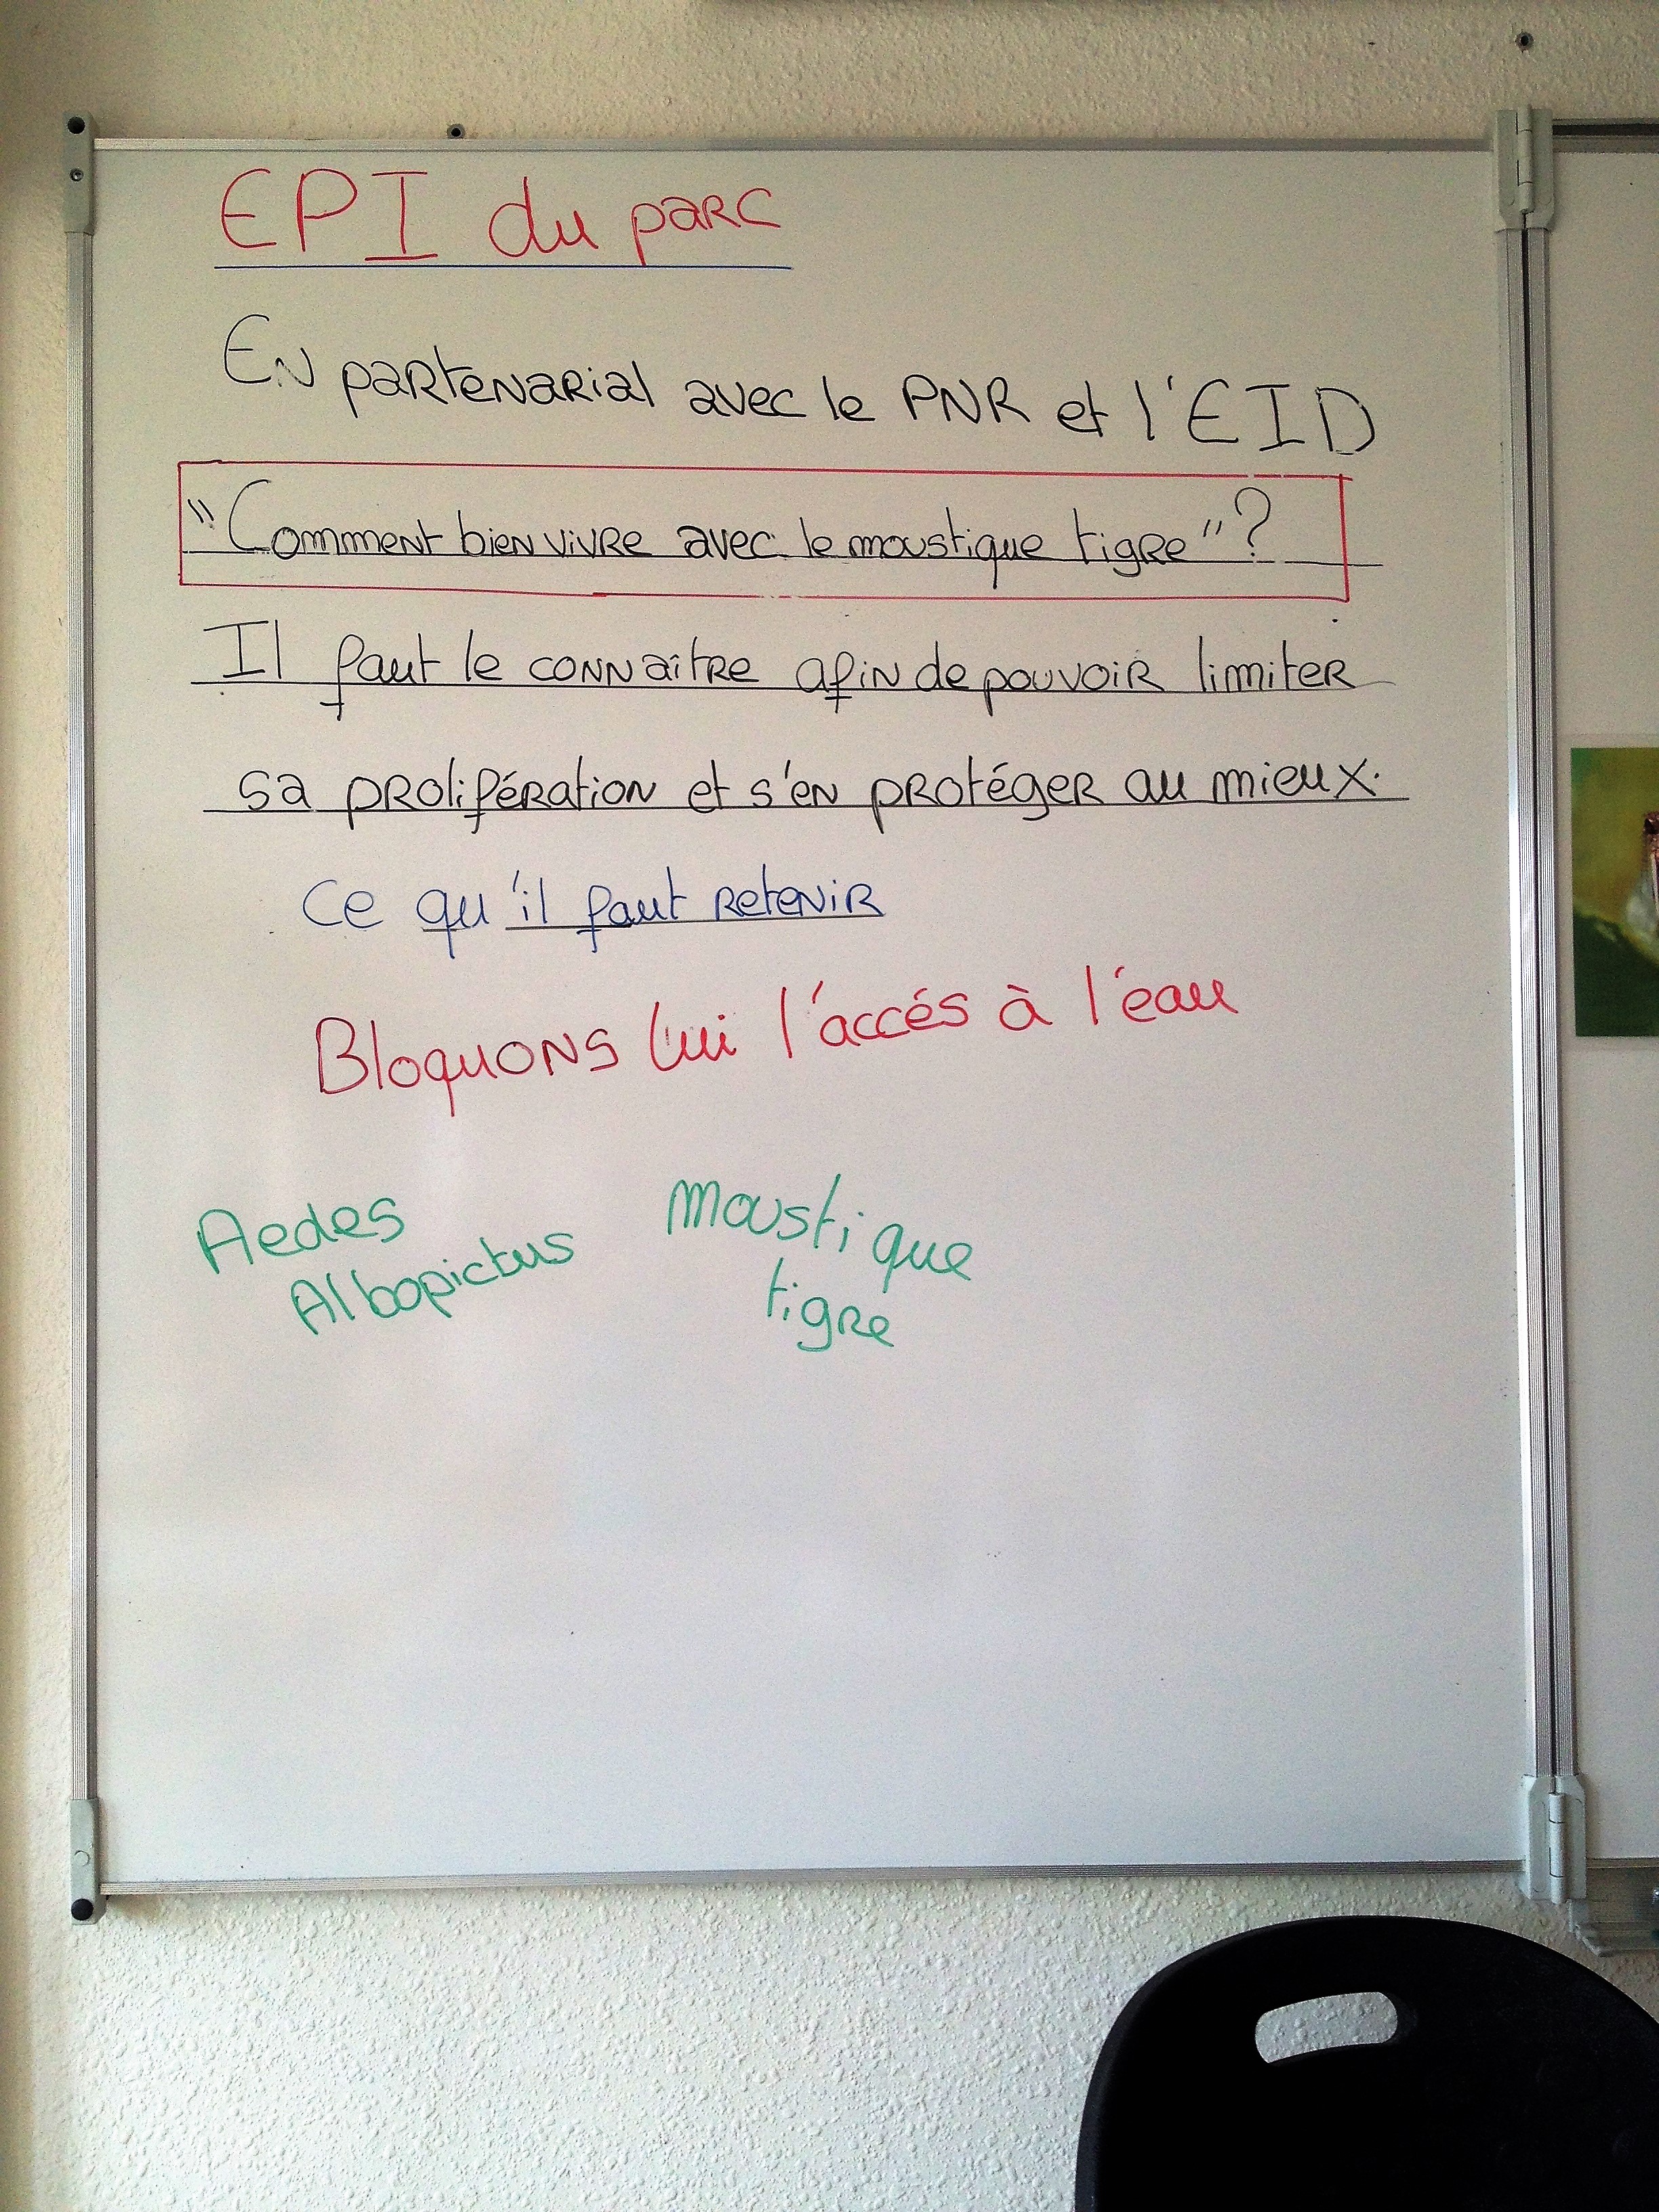 EPI du parc
En partenarial avec le PNR et l'EID
"Comment bien vivre avec le moustique tigre"?
Il faut le connaître afin de pouvoir limiter
sa prolifération et s'en protéger au mieux.
Ce qu'il faut retenir
Bloquons lui l'accés à l'eau
Aedes
Albopictus
Moustique
tigre